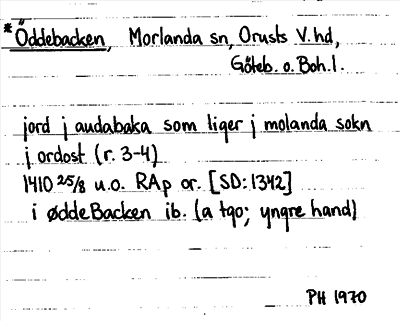 *Öddebacken, Morlanda sn, Orusts V. hd,
Göteb. o. Boh. l.
jord j audabaka som liger j molanda sokn
j ordost (r. 3-4)
1410 25/8 u.o. RAp or. [SD: 1342]
i øddeBacken ib. (a tgo; yngre hand)
PH 1970